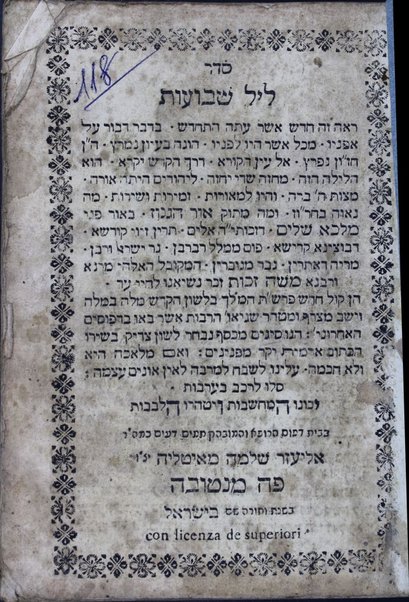 סדר
118
ליל שבועות
ראה זה חדש אשר עתה התחדש · בדבר דבור על
אפניו · מכל אשר היו לפניו · הוגד בעיון נמרץ · ה"ן
חזיון נפרץ · אל עין הקורא · דרך הקדש יקרא · הוא
הלילה הזה · מחזה שדי יחזה · ליהודים היתה אורה ·
מצות ה' ברה · והיו למאורות · זמירות ושירות · מה
נאוה בחר"וז · ומה מתוק אור הגנוז · באור פני
מלכא שלים · דומתי"ה אלים · תרין זיוי קודשא ·
דבוצינא קדישא · פום ממלל רברבן · נר ישראל ורבן ·
מריה דאתרין · גבר מגוברין · המקובל האלהי מרנא
ורבנא משה זכות זכר נשיאנו לחיי עד ·
הן קול חדש פרש"ת המלך בלשון הקדש מלה במלה
וישב מצרף ומטהר שגיאו' הרבות אשר באו בדפוסים
האחרוני' : הנוסינים מכסף נבחר לשון צדיק, בשירו
הכתום אימרות יקר מפנינים : ואם מלאכה היא
ולא חכמה · עלינו לשבח למרבה לאין אונים עצמה :
סלו לרכב בערבות
יכונו המחשבות ויטהרו הלבבות
בבית דפוס הרופא והמובהק תמים דעים כמה"ר
אליעזר שלמה מאיטליה יצ"ו
פה מנטובה
בשנת ותורה שם בישראל
con licenza de superiori